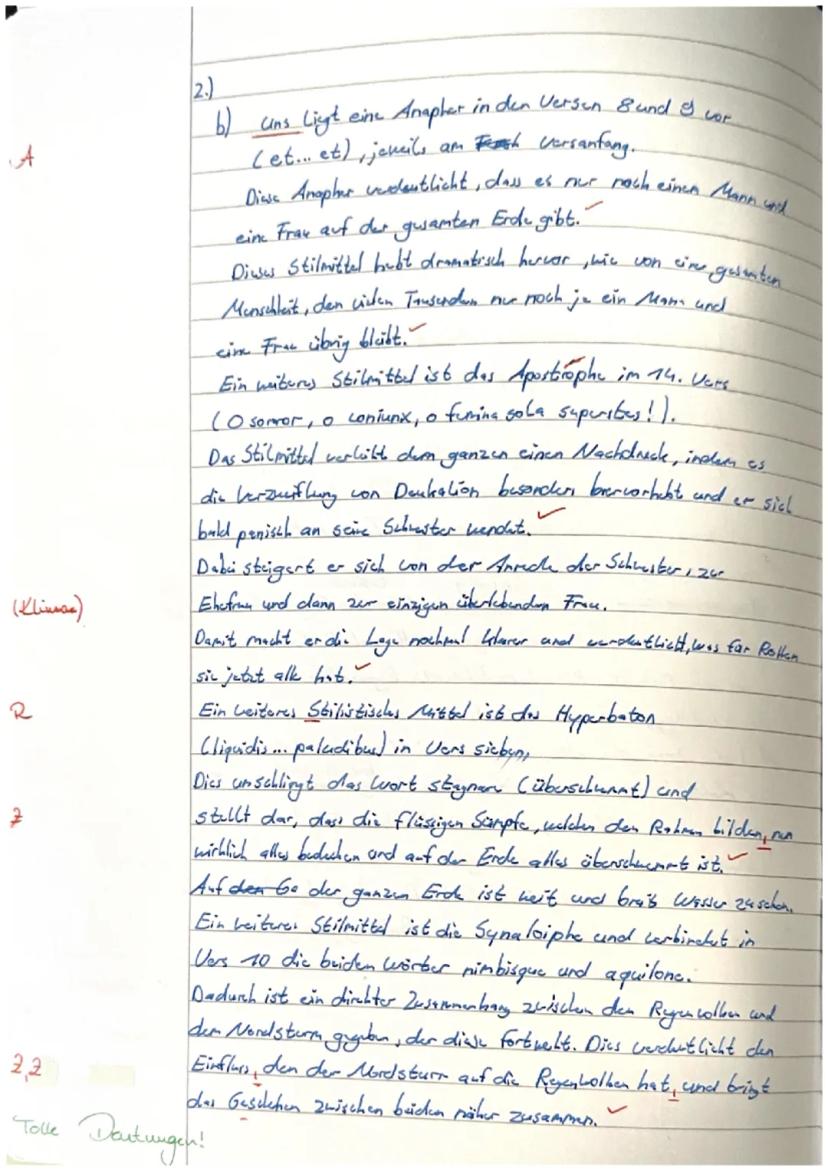 2.)
b) Uns liegt eine Anapher in den Versen 8 und 9 vor
A
(et... et), jeweils am Versanfang.
Diese Anapher verdeutlicht, dass es nur noch einen Mann und
eine Frau auf der gesamten Erde gibt.
Dieses Stilmittel hebt dramatisch hervor, wie von einer gesamten
Menschheit, den vielen Tausenden nur noch je ein Mann und
eine Frau übrig bleibt.
Ein weiteres Stilmittel ist das Apostrophe im 14. Vers
(O soror, o coniunx, o femina sola superstes!).
Das Stilmittel verleiht dem ganzen einen Nachdruck, indem es
die Verzweiflung von Deukalion besonders hervorhebt und er sich
bald panisch an seine Schwester wendet.
Dabei steigert er sich von der Anrede der Schwester, zur
(Klimax)
Ehefrau und dann zur einzigen überlebenden Frau.
Damit macht er die Lage nochmal klarer und verdeutlicht, was für Rollen
sie jetzt alle hat.
R
Ein weiteres Stilistisches Mittel ist das Hyperbaton
(liquidis... paludibus) in Vers sieben,
Dies umschlingt das Wort stagnare (überschwemmt) und
Z
stellt dar, dass die flüssigen Sümpfe, welchen den Rahmen bilden, nun
wirklich alles bedecken und auf der Erde alles überschwemmt ist.
Auf der ganzen Erde ist weit und breit Wasser zu sehen.
Ein weiteres Stilmittel ist die Synaloiphe und verbindet in
Vers 10 die beiden Wörter nimbisque und aquilone.
Dadurch ist ein direkter Zusammenhang zwischen den Regenwolken und
dem Nordsturm gegeben, der diese fortweht. Dies verdeutlicht den
Z, Z
Einfluss, den der Nordsturm auf die Regenwolken hat, und bringt
das Geschehen zwischen beiden näher zusammen.
Tolle Deutungen!